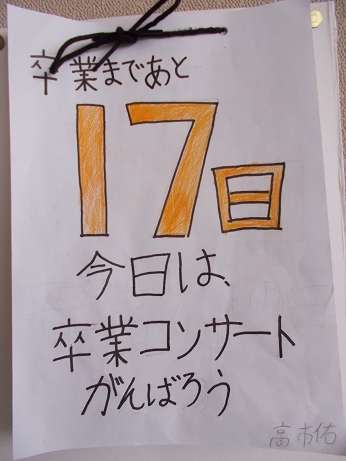 卒業まであと
17日
今日は、
卒業コンサート
がんばろう
高市佑